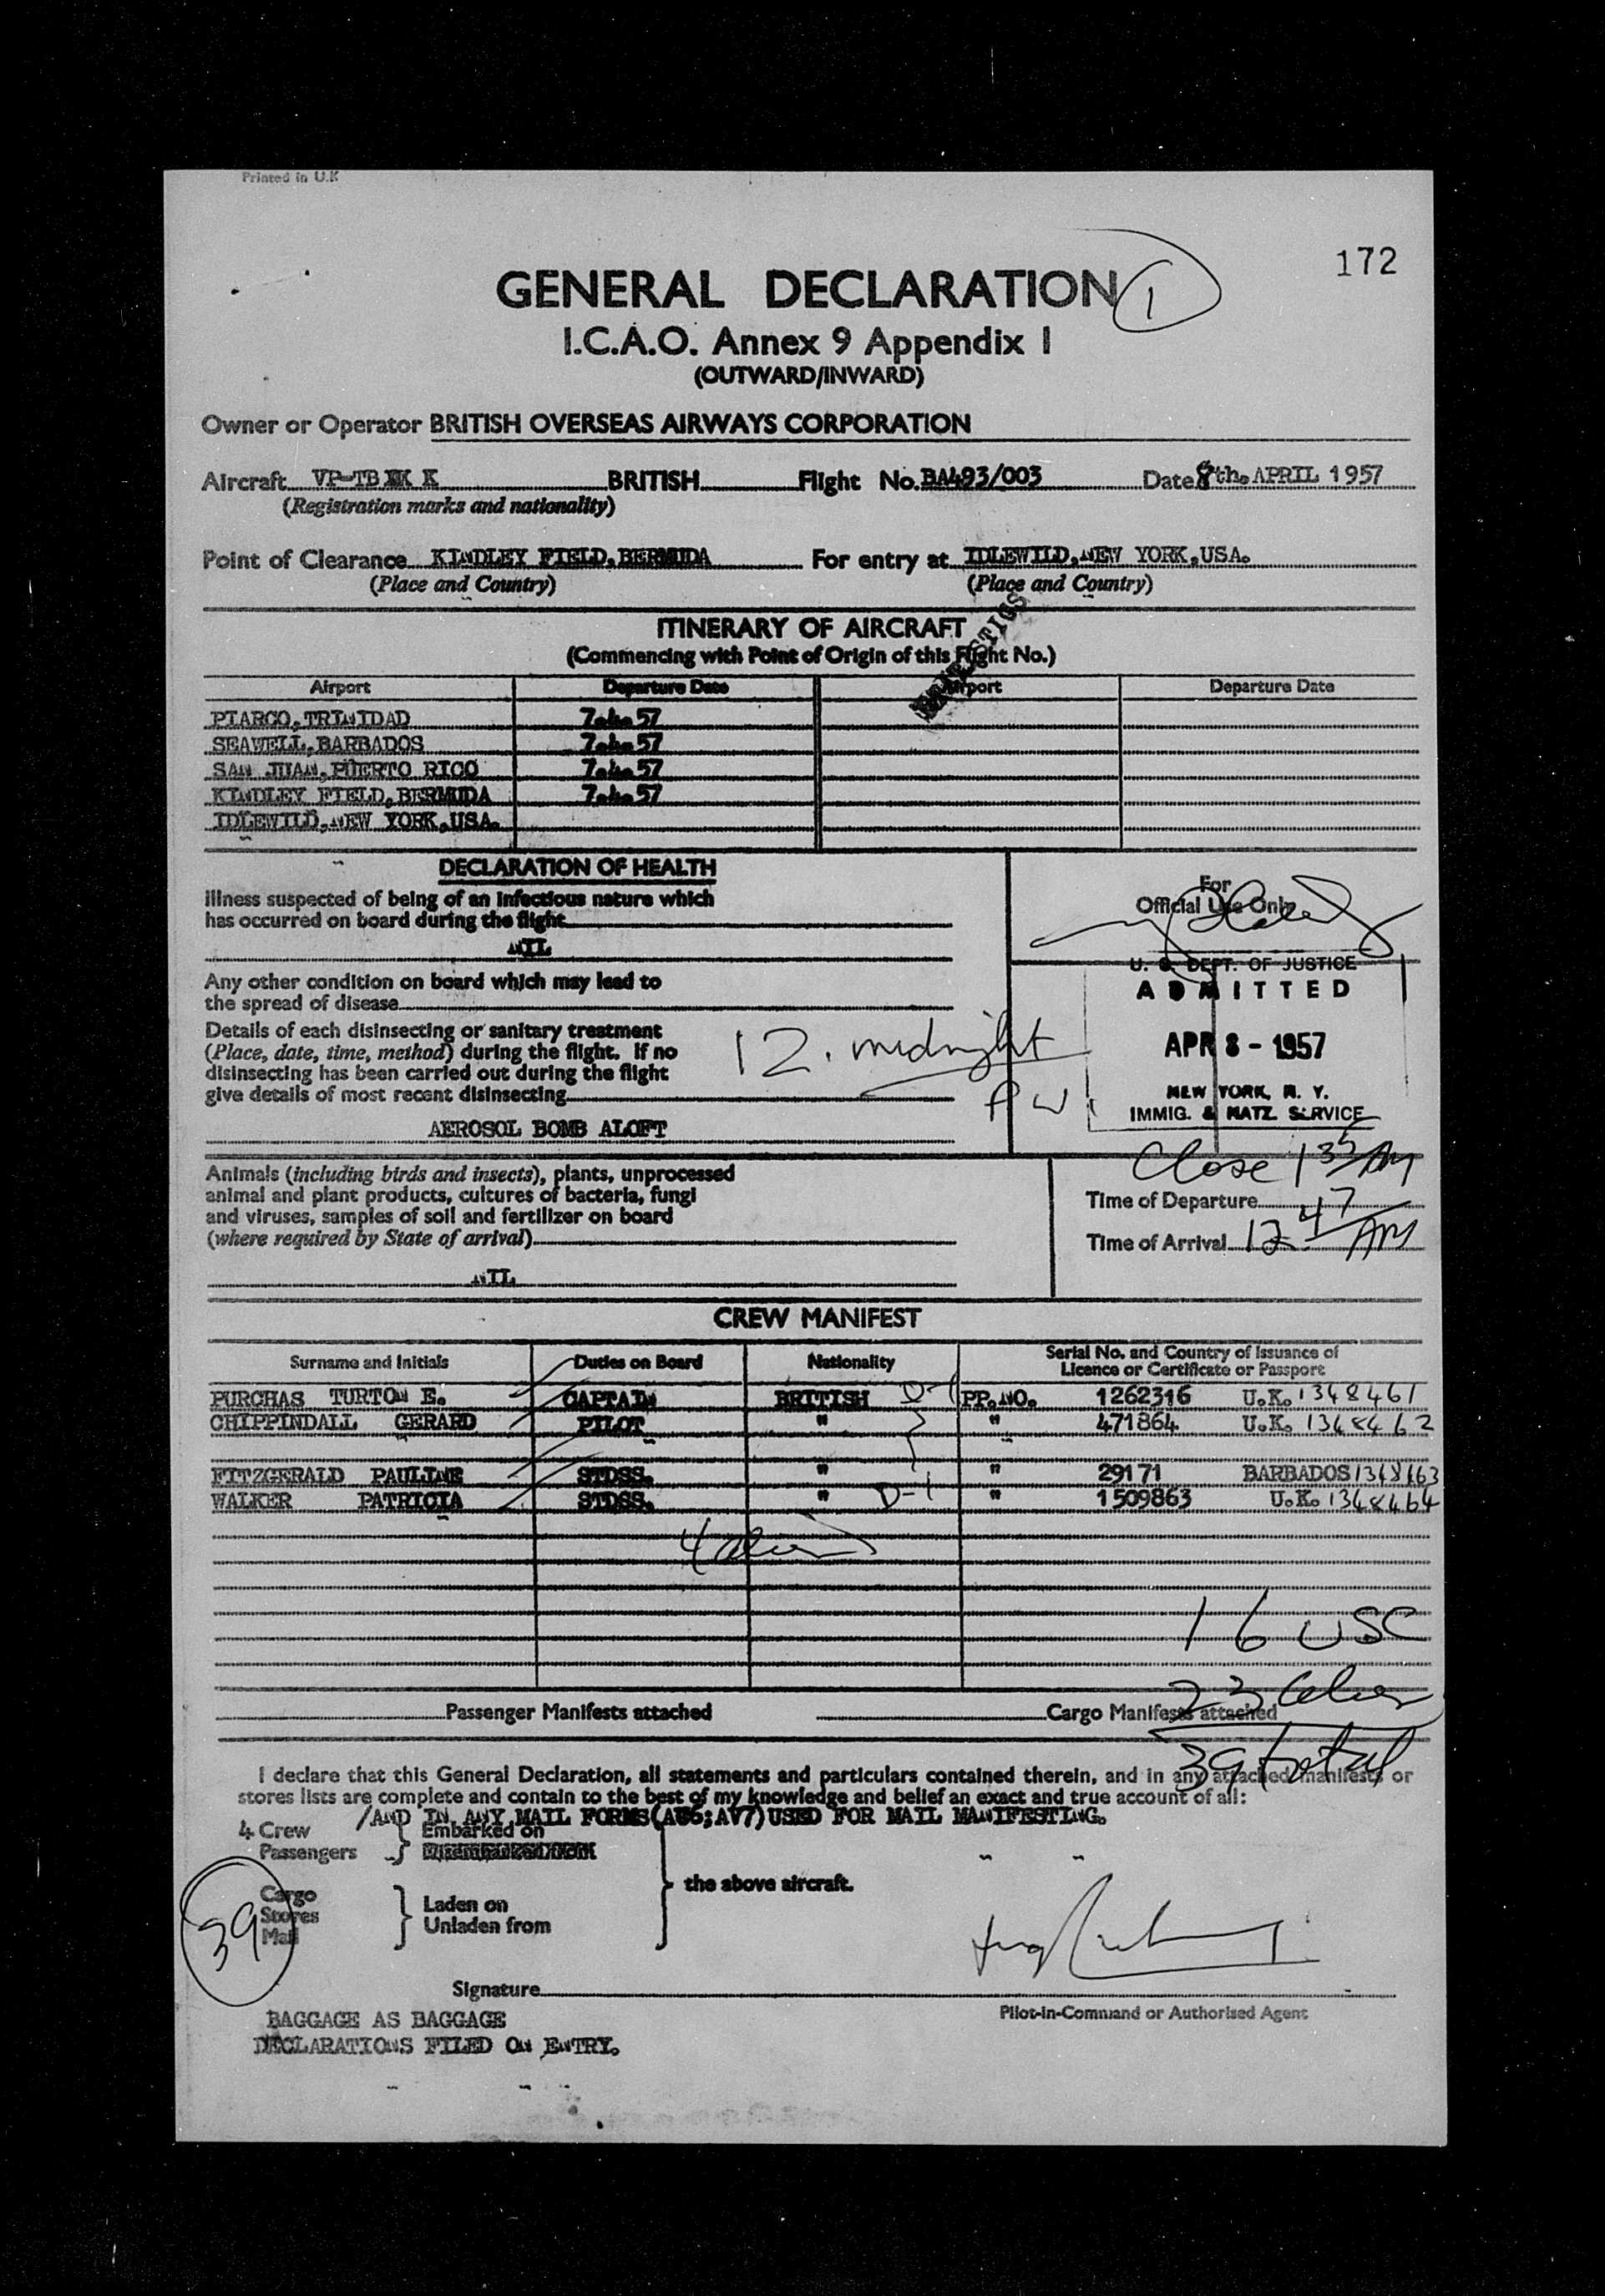 Printed in U.K
172
GENERAL DECLARATION 1
I.C.A.O. Annex 9 Appendix 1
(OUTWARD/INWARD)
Owner or Operator BRITISH OVERSEAS AIRWAYS CORPORATION
Aircraft VP-TB K BRITISH Flight No. BA493/003 Date 8th. APRIL 1957
(Registration marks and nationality)
Point of Clearance KINDLEY FIELD, BERMUDA For entry at IDLEWILD, NEW YORK, USA.
(Place and Country) (Place and Country)
ITINERARY OF AIRCRAFT
(Commencing with Point of Origin of this Flight No.)
Airport Departure Date Airport Departure Date
PIARCO, TRINIDAD 7.4.57
SEAWELL, BARBADOS 7.4.57
SAN JUAN, PUERTO RICO 7.4.57
KINDLEY FIELD, BERMUDA 7.4.57
IDLEWILD, NEW YORK, USA.
DECLARATION OF HEALTH
Illness suspected of being of an infectious nature which
has occurred on board during the flight
NIL
Any other condition on board which may lead to
the spread of disease
Details of each disinsecting or sanitary treatment
(Place, date, time, method) during the flight. If no
disinsecting has been carried out during the flight
give details of most recent disinsecting
12. midnight
PW
AEROSOL BOMB ALOFT
For
Official Use Only
U. S. DEPT. OF JUSTICE
ADMITTED
APR 8 - 1957
NEW YORK, N. Y.
IMMIG. & NATZ. SERVICE
Close 1 35 AM
Animals (including birds and insects), plants, unprocessed
animal and plant products, cultures of bacteria, fungi
and viruses, samples of soil and fertilizer on board
(where required by State of arrival)
NIL
Time of Departure
Time of Arrival 12 47 AM
CREW MANIFEST
Surname and Initials Duties on Board Nationality Serial No. and Country of Issuance of
Licence or Certificate or Passport
PURCHAS TURTON E. CAPTAIN BRITISH D-1 PP. NO. 1262316 U.K. 1348461
CHIPPINDALL GERARD PILOT " " 471864 U.K. 1348462
FITZGERALD PAULINE STDSS. " " 29171 BARBADOS 1348463
WALKER PATRICIA STDSS. " D-1 " 1509863 U.K. 1348464
4 aliens
16 USC
23 aliens
39 total
Passenger Manifests attached Cargo Manifests attached
I declare that this General Declaration, all statements and particulars contained therein, and in any attached manifests or
stores lists are complete and contain to the best of my knowledge and belief an exact and true account of all:
/AND IN ANY MAIL FORMS (AV6; AV7) USED FOR MAIL MANIFESTING.
4 Crew Embarked on
Passengers
the above aircraft.
39
Cargo
Stores
Mail
Laden on
Unladen from
Signature
Pilot-in-Command or Authorised Agent
BAGGAGE AS BAGGAGE
DECLARATIONS FILED ON ENTRY.